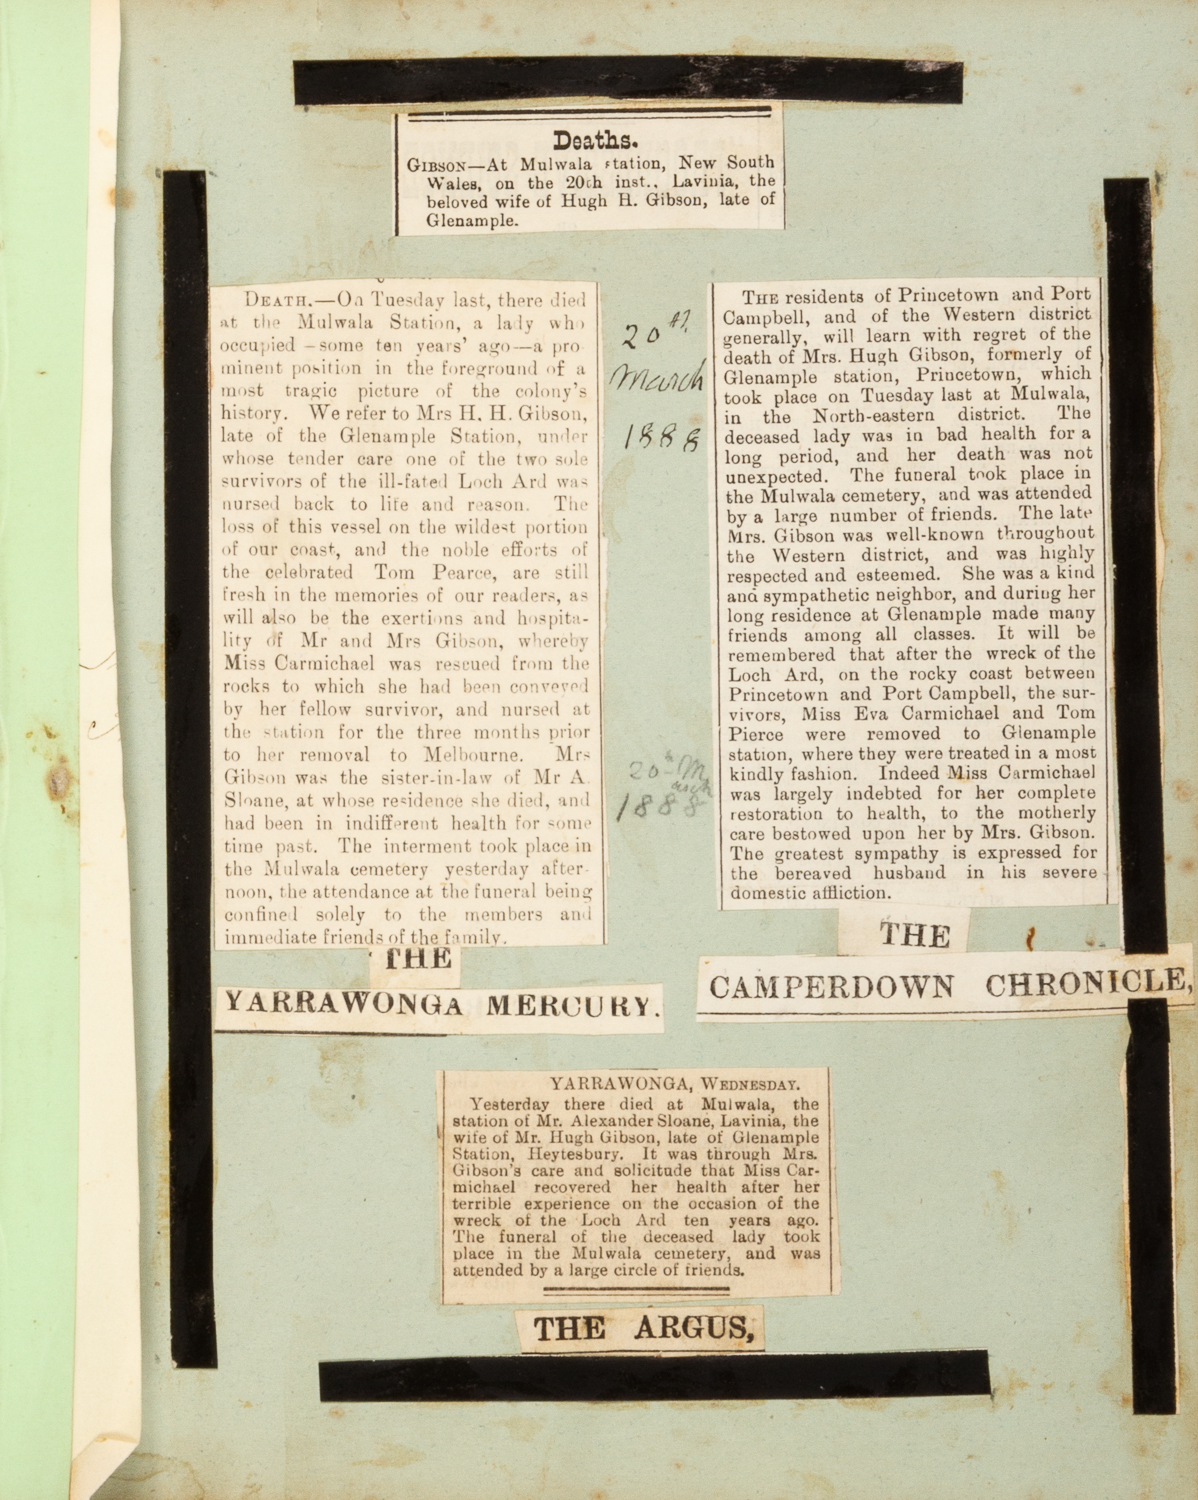 Deaths.
GIBSON—At Mulwala station, New South
Wales, on the 20th inst., Lavinia, the
beloved wife of Hugh H. Gibson, late of
Glenample.
DEATH.—On Tuesday last, there died
at the Mulwala Station, a lady who
occupied—some ten years' ago—a pro
minent position in the foreground of a
most tragic picture of the colony's
history. We refer to Mrs H. H. Gibson,
late of the Glenample Station, under
whose tender care one of the two sole
survivors of the ill-fated Loch Ard was
nursed back to life and reason. The
loss of this vessel on the wildest portion
of our coast, and the noble efforts of
the celebrated Tom Pearce, are still
fresh in the memories of our readers, as
will also be the exertions and hospita-
lity of Mr and Mrs Gibson, whereby
Miss Carmichael was rescued from the
rocks to which she had been conveyed
by her fellow survivor, and nursed at
the station for the three months prior
to her removal to Melbourne. Mrs
Gibson was the sister-in-law of Mr A.
Sloane, at whose residence she died, and
had been in indifferent health for some
time past. The interment took place in
the Mulwala cemetery yesterday after-
noon, the attendance at the funeral being
confined solely to the members and
immediate friends of the family.
THE
YARRAWONGA MERCURY.
20th
March
1888
20th M
arch
1888
THE residents of Princetown and Port
Campbell, and of the Western district
generally, will learn with regret of the
death of Mrs. Hugh Gibson, formerly of
Glenample station, Princetown, which
took place on Tuesday last at Mulwala,
in the North-eastern district. The
deceased lady was in bad health for a
long period, and her death was not
unexpected. The funeral took place in
the Mulwala cemetery, and was attended
by a large number of friends. The late
Mrs. Gibson was well-known throughout
the Western district, and was highly
respected and esteemed. She was a kind
and sympathetic neighbor, and during her
long residence at Glenample made many
friends among all classes. It will be
remembered that after the wreck of the
Loch Ard, on the rocky coast between
Princetown and Port Campbell, the sur-
vivors, Miss Eva Carmichael and Tom
Pierce were removed to Glenample
station, where they were treated in a most
kindly fashion. Indeed Miss Carmichael
was largely indebted for her complete
restoration to health, to the motherly
care bestowed upon her by Mrs. Gibson.
The greatest sympathy is expressed for
the bereaved husband in his severe
domestic affliction.
THE
CAMPERDOWN CHRONICLE,
YARRAWONGA, WEDNESDAY.
Yesterday there died at Mulwala, the
station of Mr. Alexander Sloane, Lavinia, the
wife of Mr. Hugh Gibson, late of Glenample
Station, Heytesbury. It was through Mrs.
Gibson's care and solicitude that Miss Car-
michael recovered her health after her
terrible experience on the occasion of the
wreck of the Loch Ard ten years ago.
The funeral of the deceased lady took
place in the Mulwala cemetery, and was
attended by a large circle of friends.
THE ARGUS,